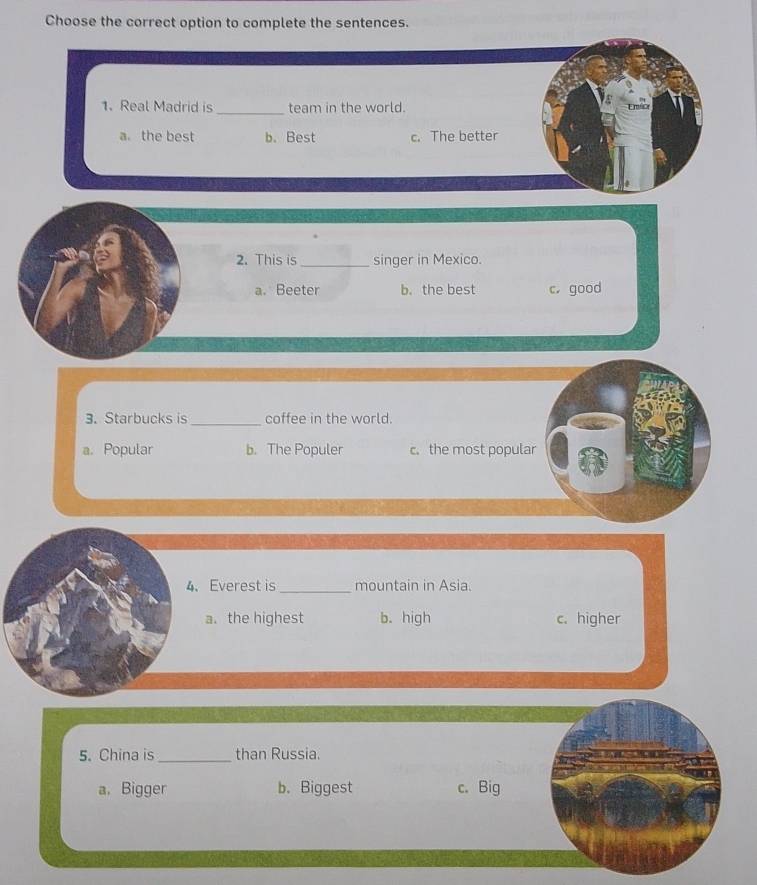 Choose the correct option to complete the sentences.
1. Real Madrid is ________ team in the world.
a. the best b. Best c. The better
2. This is ________ singer in Mexico.
a. Beeter b. the best c. good
3. Starbucks is ________ coffee in the world.
a. Popular b. The Populer c. the most popular
4. Everest is ________ mountain in Asia.
a. the highest b. high c. higher
5. China is ________ than Russia.
a. Bigger b. Biggest c. Big